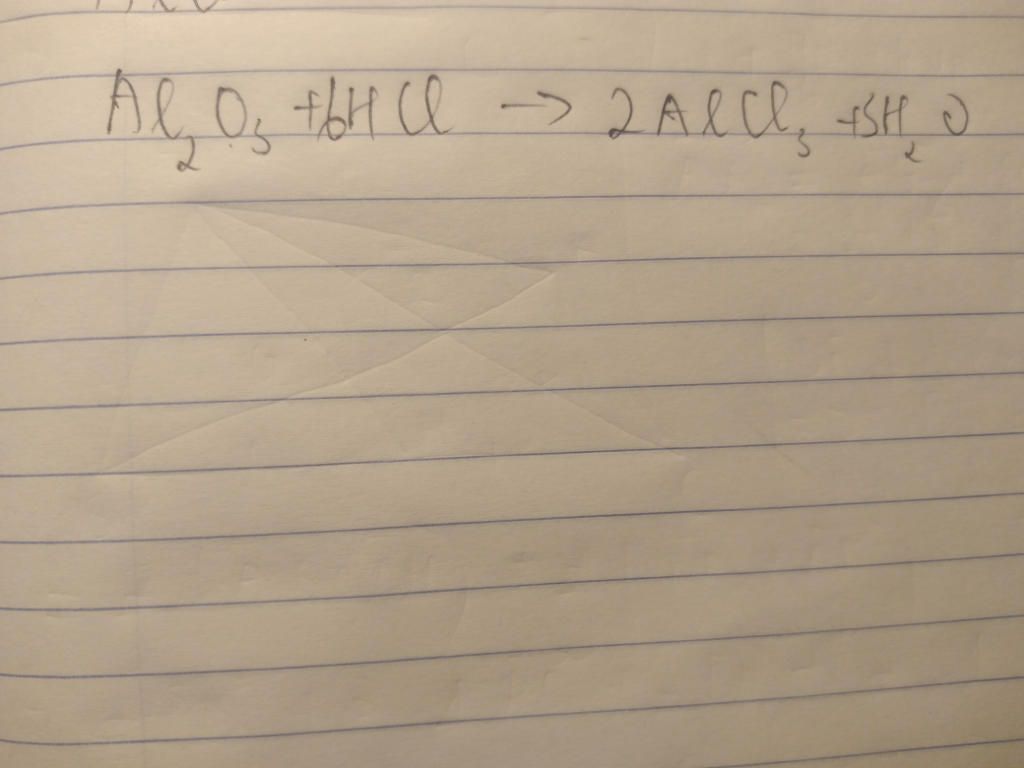 Al₂O₃ + 6HCl → 2AlCl₃ + 3H₂O